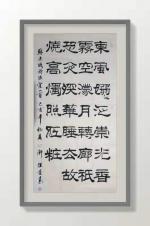 東風嫋嫋泛崇光香
霧空濛月轉廊祇
恐夜深華睡去故
燒高燭照紅粧